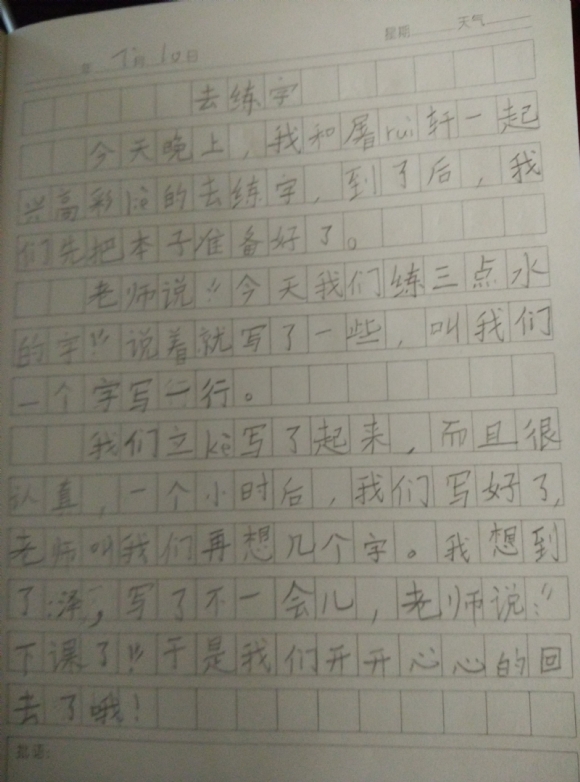 年 7月10日 星期 天气
去练字
今天晚上，我和屠rui轩一起
兴高彩lie的去练字，到了后，我
们先把本子准备好了。
老师说“今天我们练三点水
的字”说着就写了一些，叫我们
一个字写一行。
我们立kè写了起来，而且很
认真，一个小时后，我们写好了，
老师叫我们再想几个字。我想到
了：泽，写了不一会儿，老师说：“
下课了”于是我们开开心心的回
去了哦！
批语：